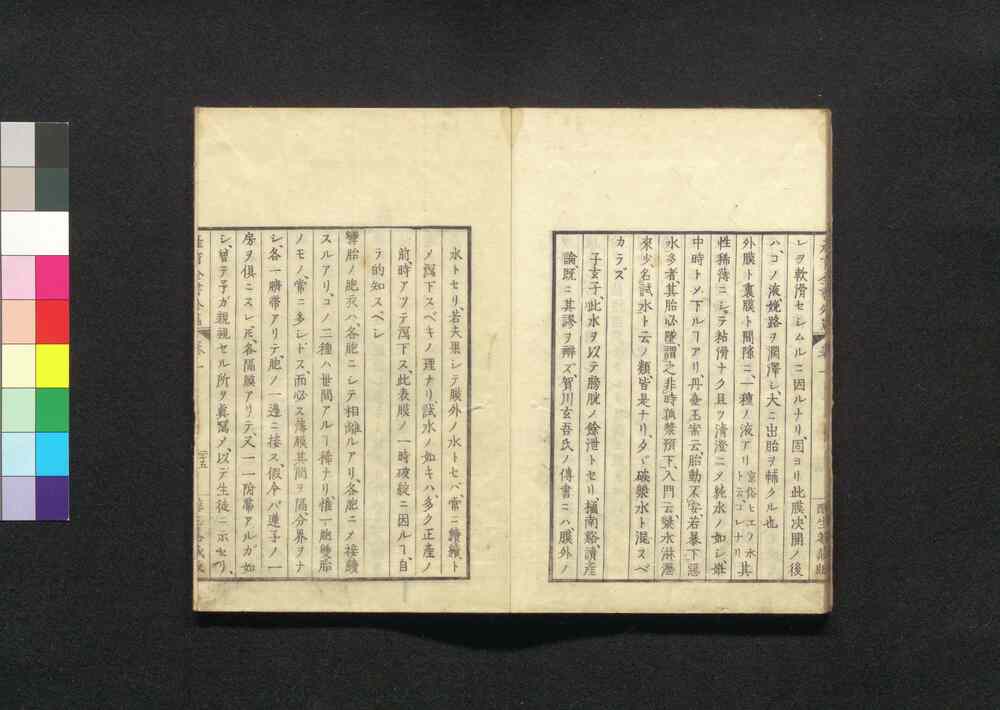 レヲ軟滑セシムルニ因ルナリ、固ヨリ此膜決開ノ後
ハ、コノ液娩路ヲ潤澤シ、大ニ出胎ヲ輔クル也
外膜ト裏膜ト間隙ニ、一種ノ液アリト云、コレナリ其
性稀薄ニシテ粘滑ナク且ツ清澄ニメ純水ノ如シ、姙
中時トメ下ルヿアリ、丹臺玉案云、胎動不安、若暴下惡
水多者、其胎必墮、謂之非時漿預下、入門云、漿水淋瀝
來少名試水ト云ノ類皆是ナリ、夕ダ破漿水ト混スベ
カラズ
子玄子、此水ヲ以テ膀胱ノ餘泄トセリ、橘南谿讀產
論、既ニ其謬ヲ辨ズ、賀川玄吾氏ノ傳書ニハ、膜外ノ
水トセリ、若夫果シテ膜外ノ水トセバ、常ニ續續ト
メ瀉下スベキノ理ナリ、試水ノ如キハ、多ク正産ノ
前、時アツテ瀉下ス、此表膜ノ一時破綻ニ因ルヿ、自
ラ的知スベシ
孿胎ノ胞衣ハ各胞ニシテ相離ルアリ、各胞ニメ接續
スルアリ、コノ二種ハ世間アルヿ稀ナリ、惟一胞雙胎
ノモノ、常ニ多シトス、而必ス薄膜其間ヲ隔、分界ヲナ
シ、各一臍帶アリテ、胞ノ一邊ニ接ス、假令バ蓮子ノ一
房ヲ倶ニスレ𪜈、各隔膜アリテ、又一一附蔕アルガ如
シ、曽テ予ガ親視セル所ヲ眞寫メ以テ生徒ニホセリ、